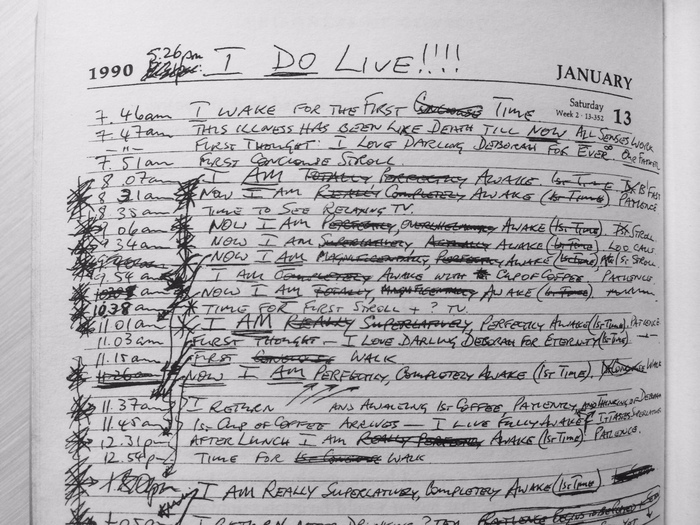 5.26pm I DO LIVE!!!!
1990 JANUARY
Saturday 13
Week 2 · 13-352
7.46am I WAKE FOR THE FIRST CONSCIOUS TIME
7.47am THIS ILLNESS HAS BEEN LIKE DEATH TILL NOW ALL SENSES WORK
-"- FIRST THOUGHT: I LOVE DARLING DEBORAH FOR EVER. OUR FATHER
7.51am FIRST CONCIOUSE STROLL.
8.07am I AM TOTALLY PERFECTLY AWAKE. 1st TIME. B'FAST
8.31am NOW I AM REALLY COMPLETELY AWAKE (1st TIME) PATIENCE
8.35am TIME TO SEE RELAXING TV.
9.06am NOW I AM PERFECTLY, OVERWHELMINGLY AWAKE (1st TIME). STROLL
9.34am NOW I AM SUPERLATIVELY, ACTUALLY AWAKE (1st TIME) LOO CALL
NOW I AM MAGNIFICENTLY, PERFECTLY AWAKE (1st TIME) 1st STROLL
9.54am I AM COMPLETELY AWAKE WITH CUP OF COFFEE. PATIENCE
am NOW I AM TOTALLY, MAGNIFICENTLY AWAKE (1st TIME)
10.38am TIME FOR FIRST STROLL + ? TV.
11.01am I AM REALLY SUPERLATIVELY, PERFECTLY AWAKE (1st TIME). PATIENCE
11.03am FIRST THOUGHT — I LOVE DARLING DEBORAH FOR ETERNITY (1st TIME).
11.15am FIRST CONCIOUS WALK
11.26am NOW I AM PERFECTLY, COMPLETELY AWAKE (1st TIME). WALK
11.37am I RETURN AND AWAITING 1st COFFEE, PATIENTLY, AND THINKING OF DEBORAH
11.45am 1st CUP OF COFFEE ARRIVES — I LIVE FULLY AWAKE IT TASTES SUPERLATIVE
12.31pm AFTER LUNCH I AM REALLY PERFECTLY AWAKE (1st TIME). PATIENCE.
12.54pm TIME FOR 1st CONCIOUS WALK
I AM REALLY SUPERLATIVELY, COMPLETELY AWAKE (1st TIME)
I RETURN